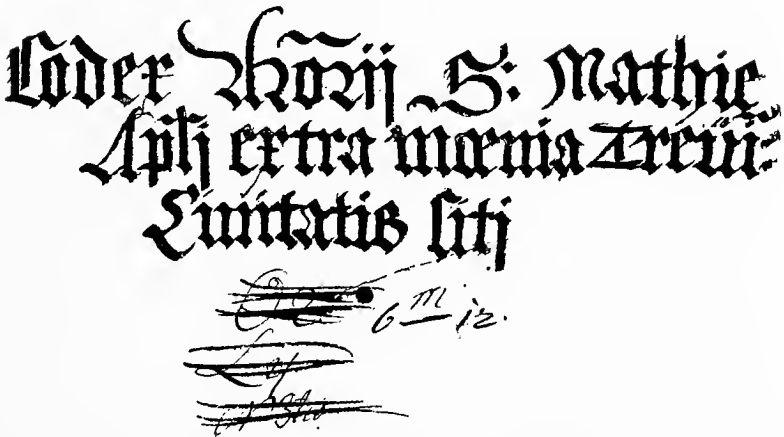 Codex Mõrij S: Mathie
Apl̃j extra mœnia Treui:
Ciuitatis siti
6 m 12.